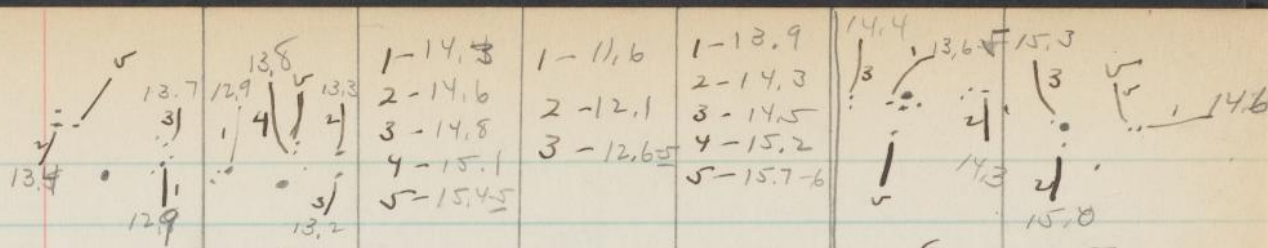 5 13.7 3 2 1 12.9
12.9 13.8 5 13.3 1 4 2 3 13.2
1-14.3
2-14.6
3-14.8
4-15.1
5-15.4-5
1-11.6
2-12.1
3-12.6-5
1-13.9
2-14.3
3-14.5
4-15.2
5-15.7-6
14.4 1 13.6 3 2 14.3 5
15.3 3 5 1 14.6 2 15.0